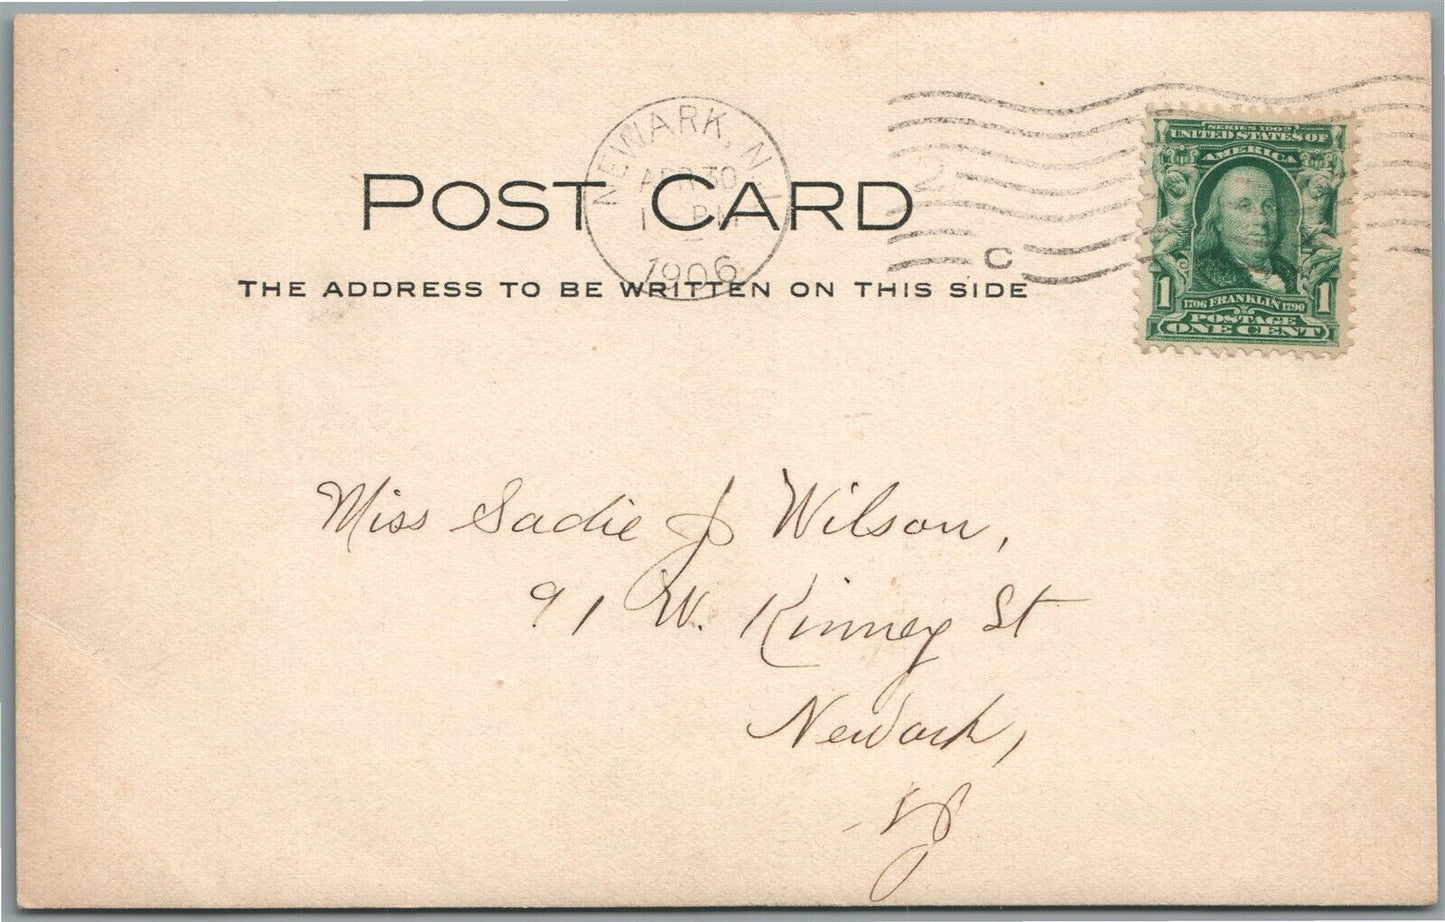 POST CARD
THE ADDRESS TO BE WRITTEN ON THIS SIDE
NEWARK, N.J.
APR 30
PM
1906
C
SERIES 1902
UNITED STATES OF
AMERICA
1 1706 FRANKLIN 1790 1
POSTAGE
ONE CENT
Miss Sadie J Wilson,
91 W. Kinney St
Newark,
NJ